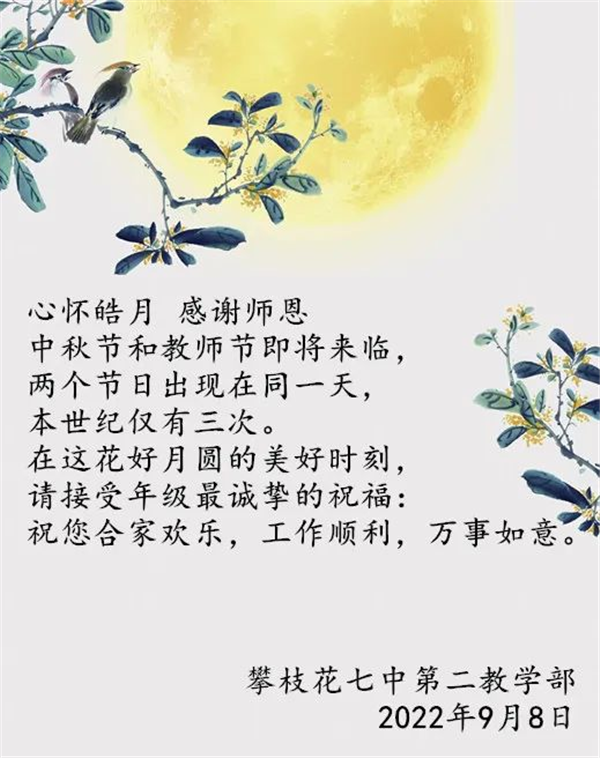 心怀皓月 感谢师恩
中秋节和教师节即将来临，
两个节日出现在同一天，
本世纪仅有三次。
在这花好月圆的美好时刻，
请接受年级最诚挚的祝福：
祝您合家欢乐，工作顺利，万事如意。
攀枝花七中第二教学部
2022年9月8日